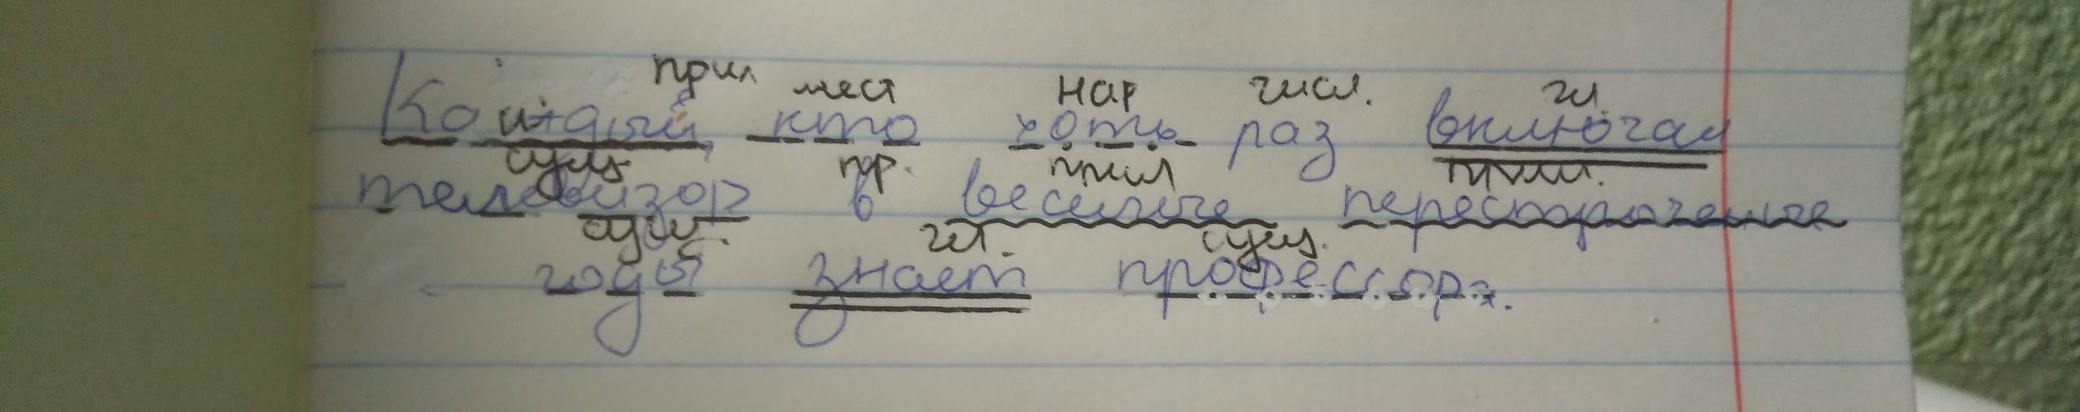 прил мест нар числ. гл.
Каждый, кто хоть раз включал
сущ. пр. прил прил.
телевизор в весёлые перестроечные
сущ. гл. сущ.
годы знает профессора.